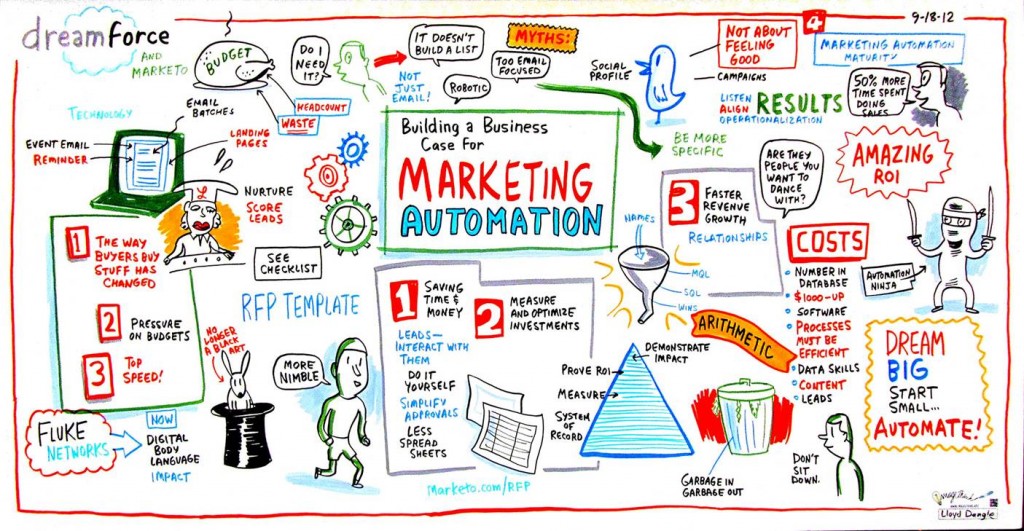 dreamforce
AND
MARKETO
BUDGET
DO I
NEED
IT?
HEADCOUNT
WASTE
TECHNOLOGY
EMAIL
BATCHES
EVENT EMAIL
REMINDER
LANDING
PAGES
NURTURE
SCORE
LEADS
L
1
THE WAY
BUYERS BUY
STUFF HAS
CHANGED
2
PRESSURE
ON BUDGETS
3
TOP
SPEED!
SEE
CHECKLIST
RFP TEMPLATE
NO
LONGER
A BLACK
ART
MORE
NIMBLE
FLUKE
NETWORKS
NOW
DIGITAL
BODY
LANGUAGE
IMPACT
IT DOESN'T
BUILD A LIST
MYTHS:
TOO EMAIL
FOCUSED
NOT
JUST
EMAIL!
ROBOTIC
Building a Business
Case For
MARKETING
AUTOMATION
1
SAVING
TIME &
MONEY
LEADS—
INTERACT WITH
THEM
DO IT
YOURSELF
SIMPLIFY
APPROVALS
LESS
SPREAD
SHEETS
2
MEASURE
AND OPTIMIZE
INVESTMENTS
Marketo.com/RFP
SOCIAL
PROFILE
NOT ABOUT
FEELING
GOOD
CAMPAIGNS
LISTEN
ALIGN
OPERATIONALIZATION
RESULTS
BE MORE
SPECIFIC
4
9-18-12
MARKETING AUTOMATION
MATURITY
50% MORE
TIME SPENT
DOING
SALES
AMAZING
ROI
3
FASTER
REVENUE
GROWTH
RELATIONSHIPS
ARE THEY
PEOPLE YOU
WANT TO
DANCE
WITH?
NAMES
MQL
SQL
WINS
ARITHMETIC
DEMONSTRATE
IMPACT
PROVE ROI
MEASURE
SYSTEM
OF
RECORD
GARBAGE IN
GARBAGE OUT
COSTS
NUMBER IN
DATABASE
$1000-UP
SOFTWARE
PROCESSES
MUST BE
EFFICIENT
DATA SKILLS
CONTENT
LEADS
AUTOMATION
NINJA
DREAM
BIG
START
SMALL...
AUTOMATE!
DON'T
SIT
DOWN.
Lloyd Dangle